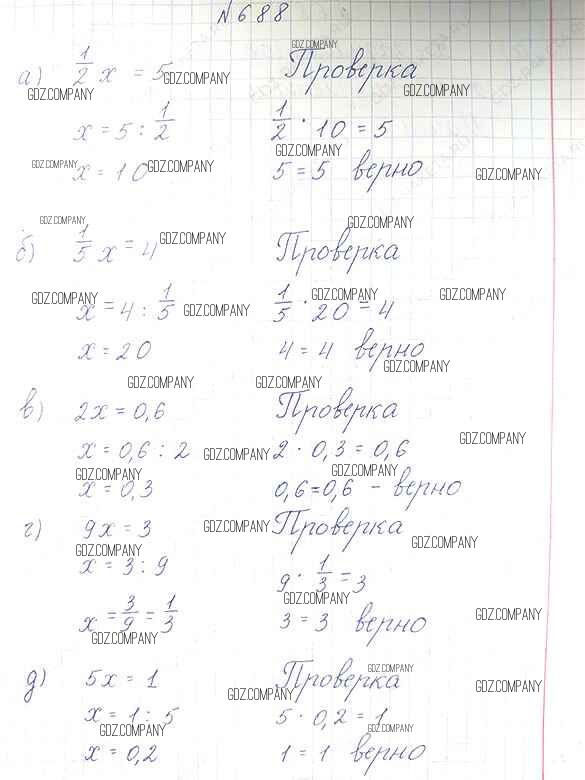 №688
а) 1/2 x = 5 Проверка
x = 5 : 1/2 1/2 · 10 = 5
x = 10 5 = 5 верно
б) 1/5 x = 4 Проверка
x = 4 : 1/5 1/5 · 20 = 4
x = 20 4 = 4 верно
в) 2x = 0,6 Проверка
x = 0,6 : 2 2 · 0,3 = 0,6
x = 0,3 0,6 = 0,6 - верно
г) 9x = 3 Проверка
x = 3 : 9 9 · 1/3 = 3
x = 3/9 = 1/3 3 = 3 верно
д) 5x = 1 Проверка
x = 1 : 5 5 · 0,2 = 1
x = 0,2 1 = 1 верно
GDZ.COMPANY